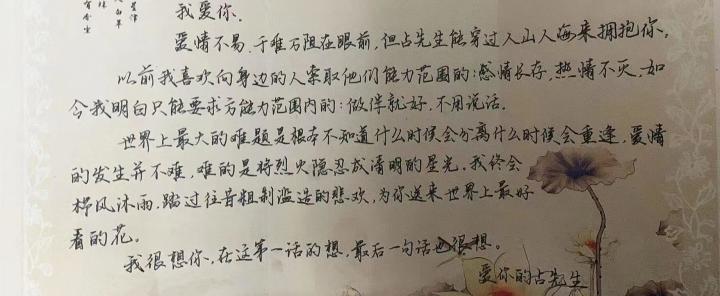 我爱你.
爱情不易.千难万阻在眼前,但占先生能穿过人山人海来拥抱你.
以前我喜欢向身边的人索取他们能力范围的:感情长存,热情不灭,如
今我明白只能要求方能力范围内的:做伴就好,不用说话.
世界上最大的难题是根本不知道什么时候会分离什么时候会重逢,爱情
的发生并不难,难的是将烈火隐忍成清明的星光.我终会
栉风沐雨.踏过往昔粗制滥造的悲欢,为你送来世界上最好
看的花。
我很想你,在这第一话的想,最后一句话也很想。
爱你的占先生